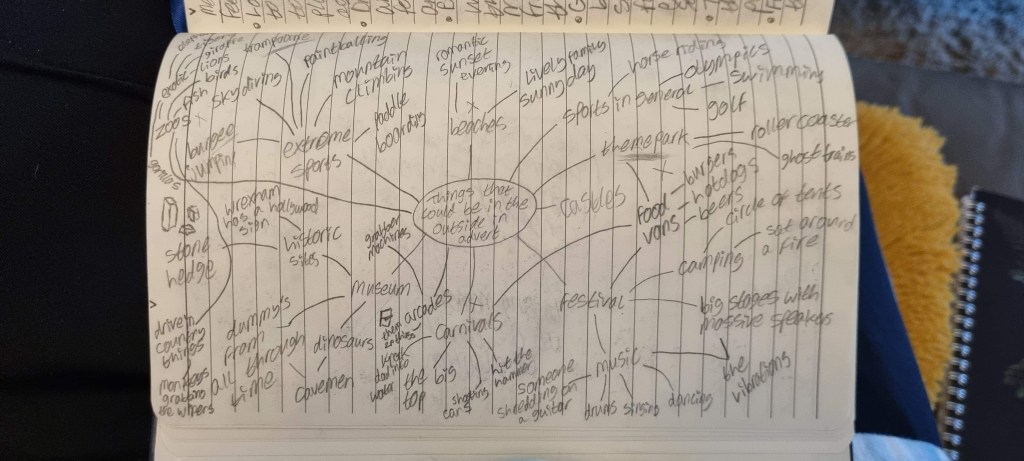 giraffe
lions
birds
fish
zoos
gorillas
trampoline
paintballing
skydiving
mountain
climbing
bungee
jumping
extreme
sports
paddle
boarding
romantic
sunset
evening
lively family
sunny day
beaches
horse riding
sports in general
olympics
swimming
golf
theme park
roller coaster
ghost trains
things that
could be in the
outside in
advert
castles
food
vans
burgers
hotdogs
beers
circle of tents
camping
sat around
a fire
festival
big stages with
massive speakers
the
vibrations
music
someone
shredding on
a guitar
drums
singing
dancing
wrexham
has a hollywood
sign
historic
sites
stone
hedge
museum
dummy's
from
all through
time
dinosaurs
cavemen
arcades
carnivals
the big
top
hit the
hammer
drive in
country
monkeys
grabbing
the wipers